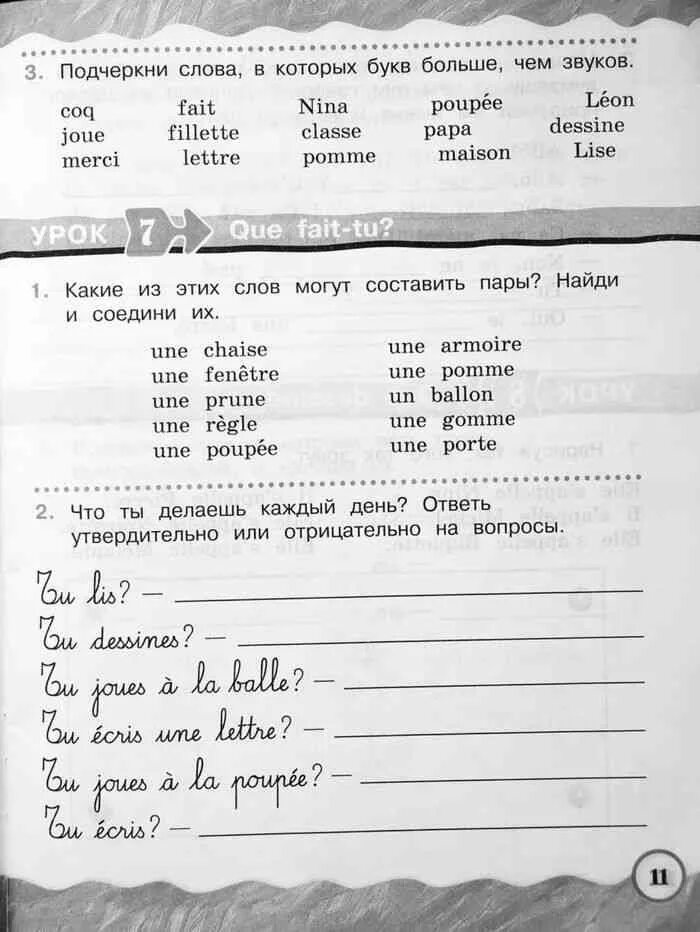 3. Подчеркни слова, в которых букв больше, чем звуков.
coq fait Nina poupée Léon
joue fillette classe papa dessine
merci lettre pomme maison Lise
УРОК 7 Que fait-tu?
1. Какие из этих слов могут составить пары? Найди
и соедини их.
une chaise une armoire
une fenêtre une pomme
une prune un ballon
une règle une gomme
une poupée une porte
2. Что ты делаешь каждый день? Ответь
утвердительно или отрицательно на вопросы.
Tu lis? —
Tu dessines? —
Tu joues à la balle? —
Tu écris une lettre? —
Tu joues à la poupée? —
Tu écris? —
11